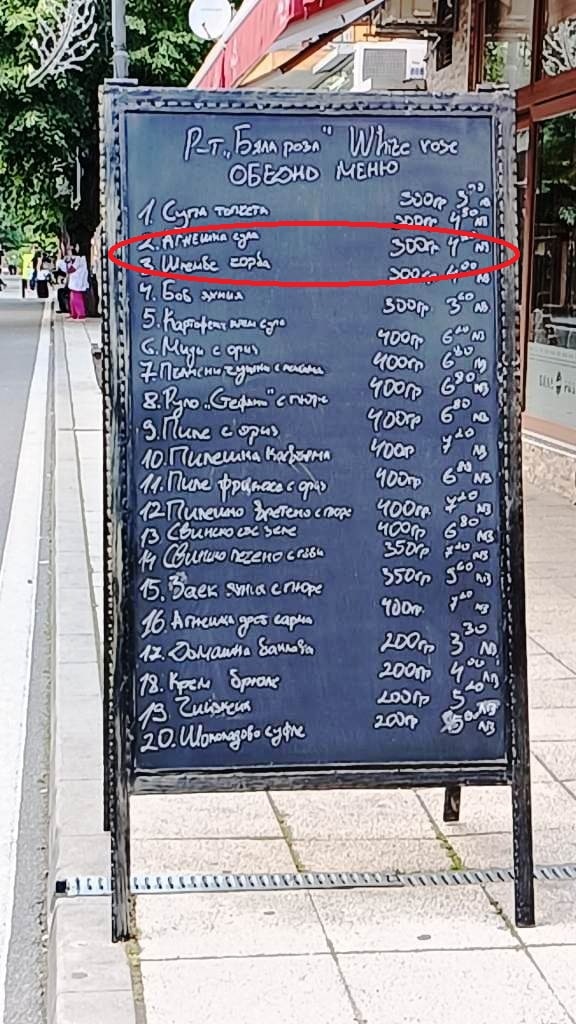 Р-т „Бяла роза" White rose
ОБЕДНО МЕНЮ
1. Супа топчета 300гр 3⁹⁰ лв
2. Агнешка супа 300гр 4⁸⁰ лв
3. Шкембе чорба 300гр 4⁰⁰ лв
4. Боб яхния 300гр 4⁰⁰ лв
5. Картофена крем супа 300гр 3⁶⁰ лв
6. Миди с ориз 400гр 6⁴⁰ лв
7. Пълнени чушки с 400гр 6⁸⁰ лв
8. Руло „Стефани" с пюре 400гр 6⁸⁰ лв
9. Пиле с ориз 400гр 6⁸⁰ лв
10. Пилешка кавърма 400гр лв
11. Пиле фрикасе с ориз 400гр 6⁸⁰ лв
12 Пилешко вретено с пюре 400гр лв
13 Свинско със зеле 400гр 6⁸⁰ лв
14 Свинско печено с гъби 350гр лв
15. Заек яхния с пюре 350гр лв
16. Агнешка дроб сарма 400гр лв
17. Домашна баклава 200гр 3³⁰ лв
18. Крем брюле 200гр 4⁰⁰ лв
19 Чийзкейк 200гр 5 лв
20. Шоколадово суфле 200гр лв